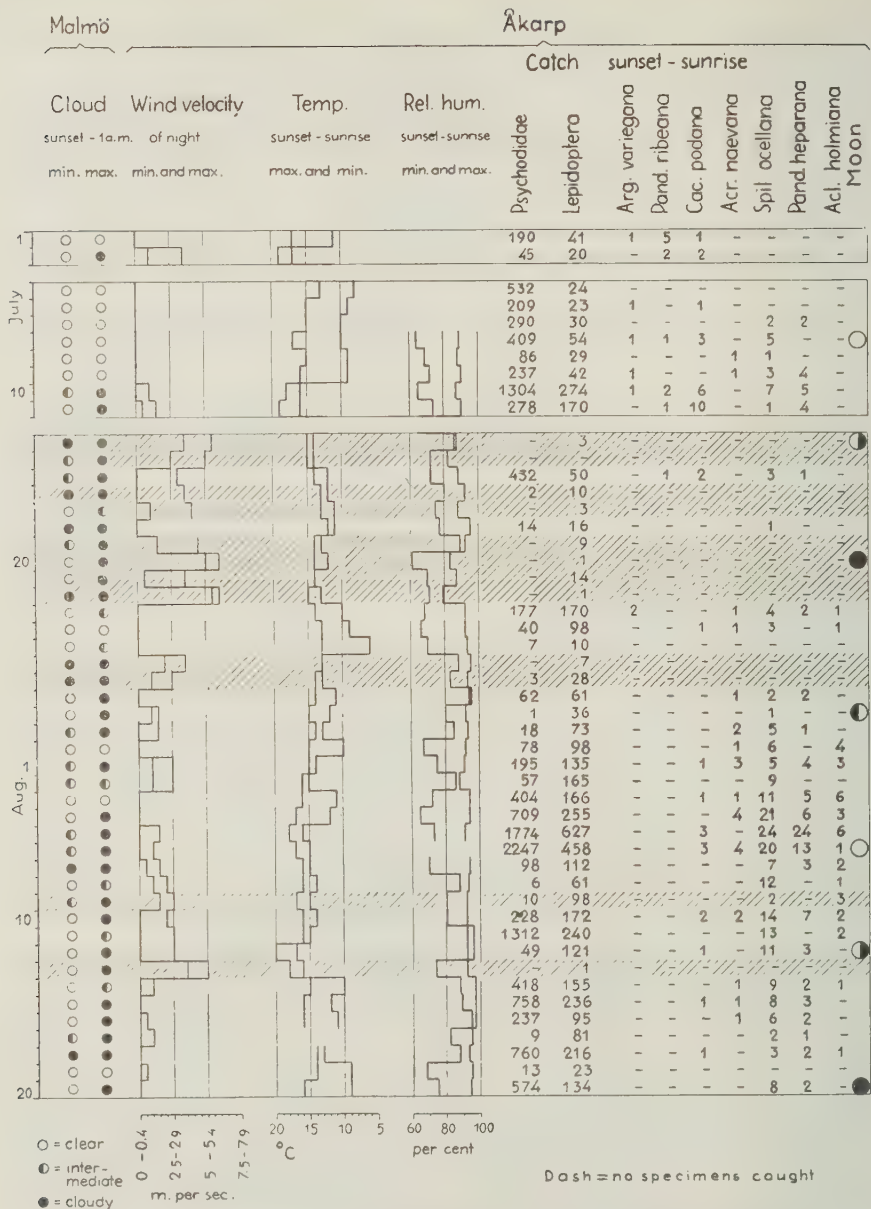 Malmö Åkarp
Catch sunset - sunrise
Cloud Wind velocity Temp. Rel. hum.
sunset - 1a.m. of night sunset - sunrise sunset - sunrise
min. max. min. and max. max. and min. min. and max.
Psychodidae
Lepidoptera
Arg. variegana
Pand. ribeana
Cac. podana
Acr. naevana
Spil ocellana
Pand. heparana
Acl. holmiana
Moon
1 190 41 1 5 1 - - - -
45 20 - 2 2 - - - -
July
532 24 - - - - - - -
209 23 1 - 1 - - - -
290 30 - - - - 2 2 -
409 54 1 1 3 - 5 - -
86 29 - - - 1 1 - -
237 42 1 - - 1 3 4 -
10 1304 274 1 2 6 - 7 5 -
278 170 - 1 10 - 1 4 -
- 3 - - - - - - -
- - - - - - - - -
432 50 - 1 2 - 3 1 -
2 10 - - - - - - -
- 3 - - - - - - -
14 16 - - - - 1 - -
- 9 - - - - - - -
20 - 1 - - - - - - -
- 14 - - - - - - -
- 1 - - - - - - -
177 170 2 - - 1 4 2 1
40 98 - - 1 1 3 - 1
7 10 - - - - - - -
- 7 - - - - - - -
3 28 - - - - - - -
62 61 - - - 1 2 2 -
1 36 - - - - 1 - -
18 73 - - - 2 5 1 -
78 98 - - - 1 6 - 4
Aug. 1 195 135 - - 1 3 5 4 3
57 165 - - - - 9 - -
404 166 - - 1 1 11 5 6
709 255 - - - 4 21 6 3
1774 627 - - 3 - 24 24 6
2247 458 - - 3 4 20 13 1
98 112 - - - - 7 3 2
6 61 - - - - 12 - 1
10 98 - - - - 2 - 3
10 228 172 - - 2 2 14 7 2
1312 240 - - - - 13 - 2
49 121 - - 1 - 11 3 -
- 1 - - - - - - -
418 155 - - - 1 9 2 1
758 236 - - 1 1 8 3 -
237 95 - - - 1 6 2 -
9 81 - - - - 2 1 -
760 216 - - 1 - 3 2 1
13 23 - - - - - - -
20 574 134 - - - - 8 2 -
○ = clear
◐ = inter-
mediate
● = cloudy
0 - 0.4
2.5 - 2.9
5 - 5.4
7.5 - 7.9
m. per sec.
20 15 10 5
°C
60 80 100
per cent
Dash = no specimens caught